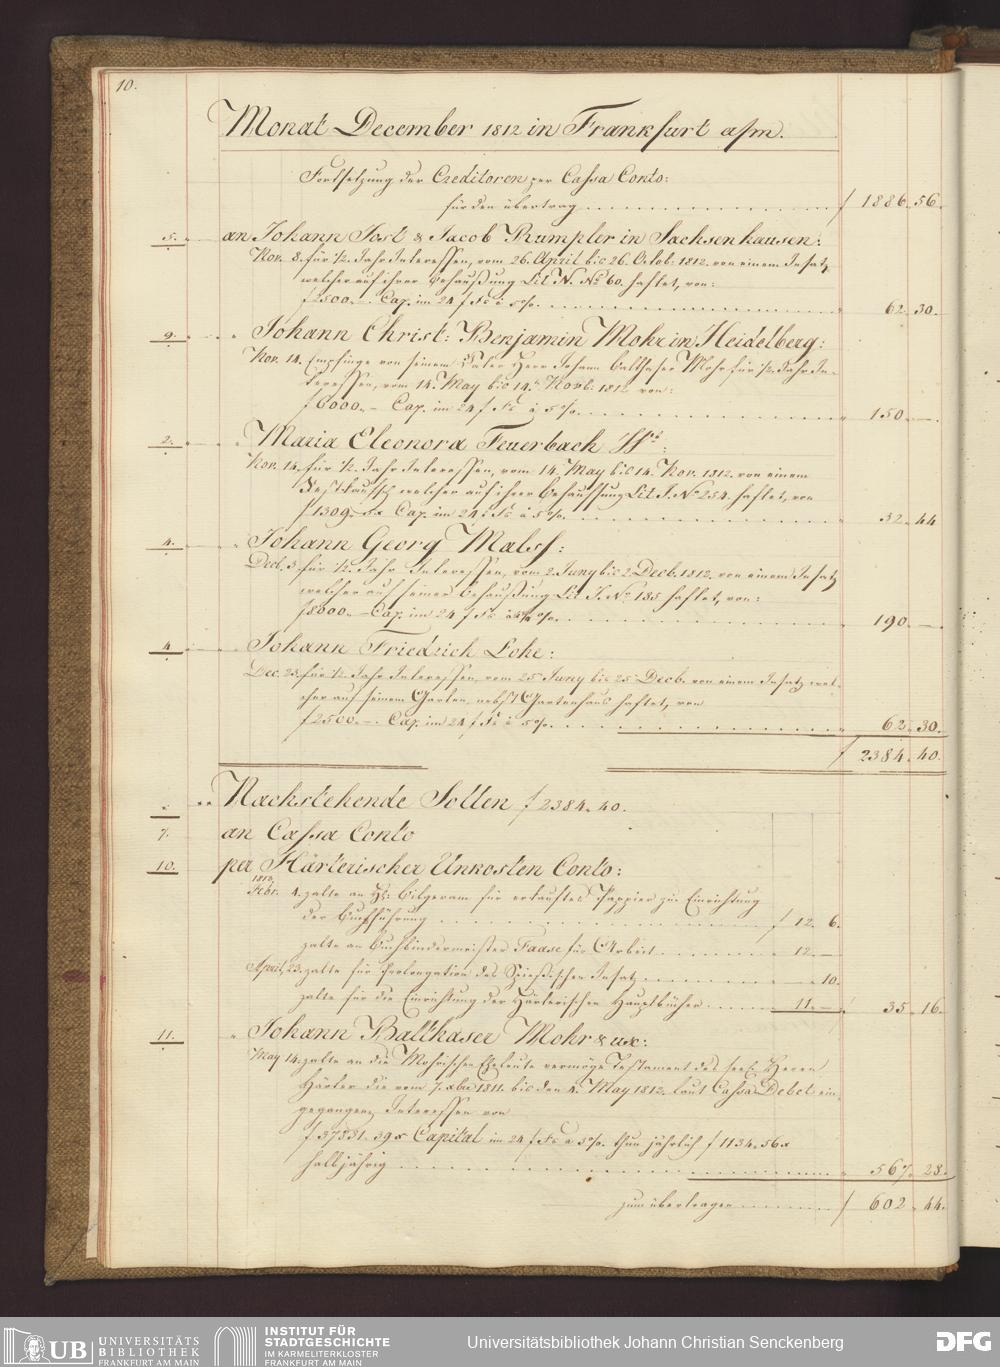 10.
Monat December 1812 in Frankfurt a/m.
Fortsetzung der Creditoren per Cassa Conto:
für den übertrag f 1886. 56.
5. an Johann Jost & Jacob Rumpler in Sachsenhausen:
Nov. 8. für ½ Jahr Interessen, vom 26. April bis 26. Octob: 1812. von einem Insatz,
welcher auf ihrer Behaußung Lit N. No 60. haftet, von:
f 2500.— Cap. im 24 f Fs à 5%. 62. 30.
9. " Johann Christ: Benjamin Mohr in Heidelberg:
Nov. 14. Empfinge von seinem Vater Herr Johann Balthaser Mohr für ½ Jahr In-
teressen, vom 14. May bis 14. Novb: 1812 von:
f 6000.— Cap. im 24 f Fs à 5%. " 150. —.
2. " Maria Eleonora Feuerbach
Nov. 14. für ½ Jahr Interessen, vom 14. May bis 14. Nov. 1812. von einem
welcher auf ihrer Behaussung Lit J. No 254. haftet, von
f 1309. Cap. im 24 f Fs à 5%. " 32. 44
4. " Johann Georg Malss:
Decb. 3. für ½ Jahr Interessen, vom 2. Juny bis 2 Decb. 1812. von einem Insatz
welcher auf seiner Behaußung Lit J. No 185 haftet, von:
f 8000.— Cap. im 24 f Fs à 4¾%. " 190. —.
4. " Johann Friedrich Lohe:
Dec. 23. für ½ Jahr Interessen, vom 25 Juny bis 25 Decb. von einem Insatz wel-
cher auf seinem Garten, nebst Gartenhaus haftet, von
f 2500.—. Cap. im 24 f Fs à 5%. " 62. 30.
f 2384. 40.
Nachstehende Sollen f 2384. 40.
7. an Cassa Conto
10. per Härterischer Unkosten Conto:
1812.
Febr. 4. zalte an Hr: Bilgeram für erkauftes Pappier zu Einrichtung
der Buchführung f 12. 6.
zalte an Buchbindermeister Faase für Arbeit " 12. —
April 23. zalte für Prolongation des Insatz " — " 10.
zalte für die Einrichtung der Härterischen Hauptbücher " 11. —. f 35. 16.
11. " Johann Balthaser Mohr & ux:
May 14. zalte an die Mohrischen Eheleute vermöge Testament des seel. Herrn
Härter die vom 7. xbr 1811. bis den 4. May 1812. laut Cassa Debet ein-
gegangene Interessen von
f 37831. 39 x Capital im 24 f Fs à 3%. thun jährlich f 1134. 56 x
halbjährig " 567. 28.
zum übertragen f 602. 44.
UB UNIVERSITÄTS
BIBLIOTHEK
FRANKFURT AM MAIN
INSTITUT FÜR
STADTGESCHICHTE
IM KARMELITERKLOSTER
FRANKFURT AM MAIN
Universitätsbibliothek Johann Christian Senckenberg
DFG